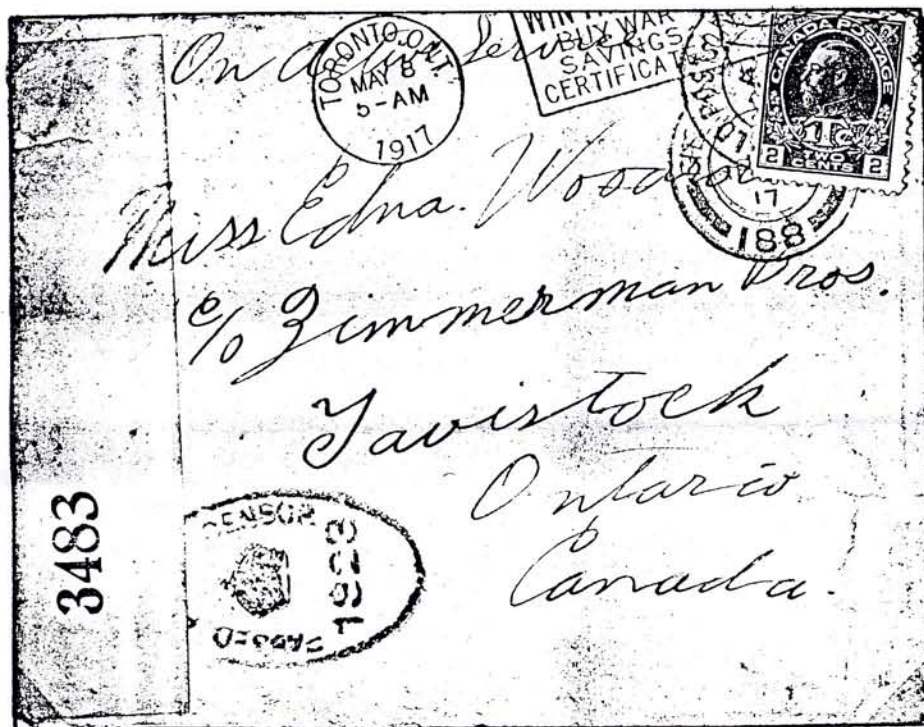 On Service
TORONTO, ONT.
MAY 8
5-AM
1917
WIN
BUY WAR
SAVINGS
CERTIFICAT
CANADA POSTAGE
1Tc
2 TWO CENTS 2
17
188
Miss Edna.
c/o Zimmerman Bros.
Tavistock
Ontario
Canada.
3483
CENSOR
1823
PASSED